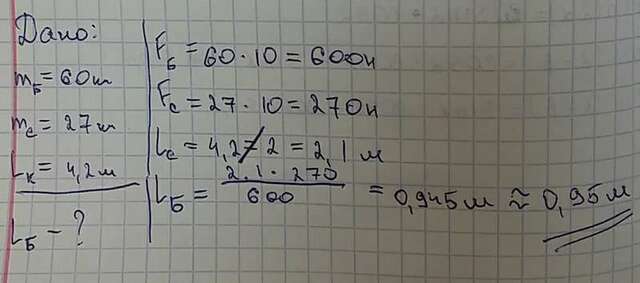 Дано:
m_Б = 60 кг
m_с = 27 кг
L_к = 4,2 м
L_Б - ?
F_Б = 60 · 10 = 600 Н
F_с = 27 · 10 = 270 Н
L_с = 4,2 / 2 = 2,1 м
L_Б = 2.1 · 270 / 600 = 0,945 м ≈ 0,95 м